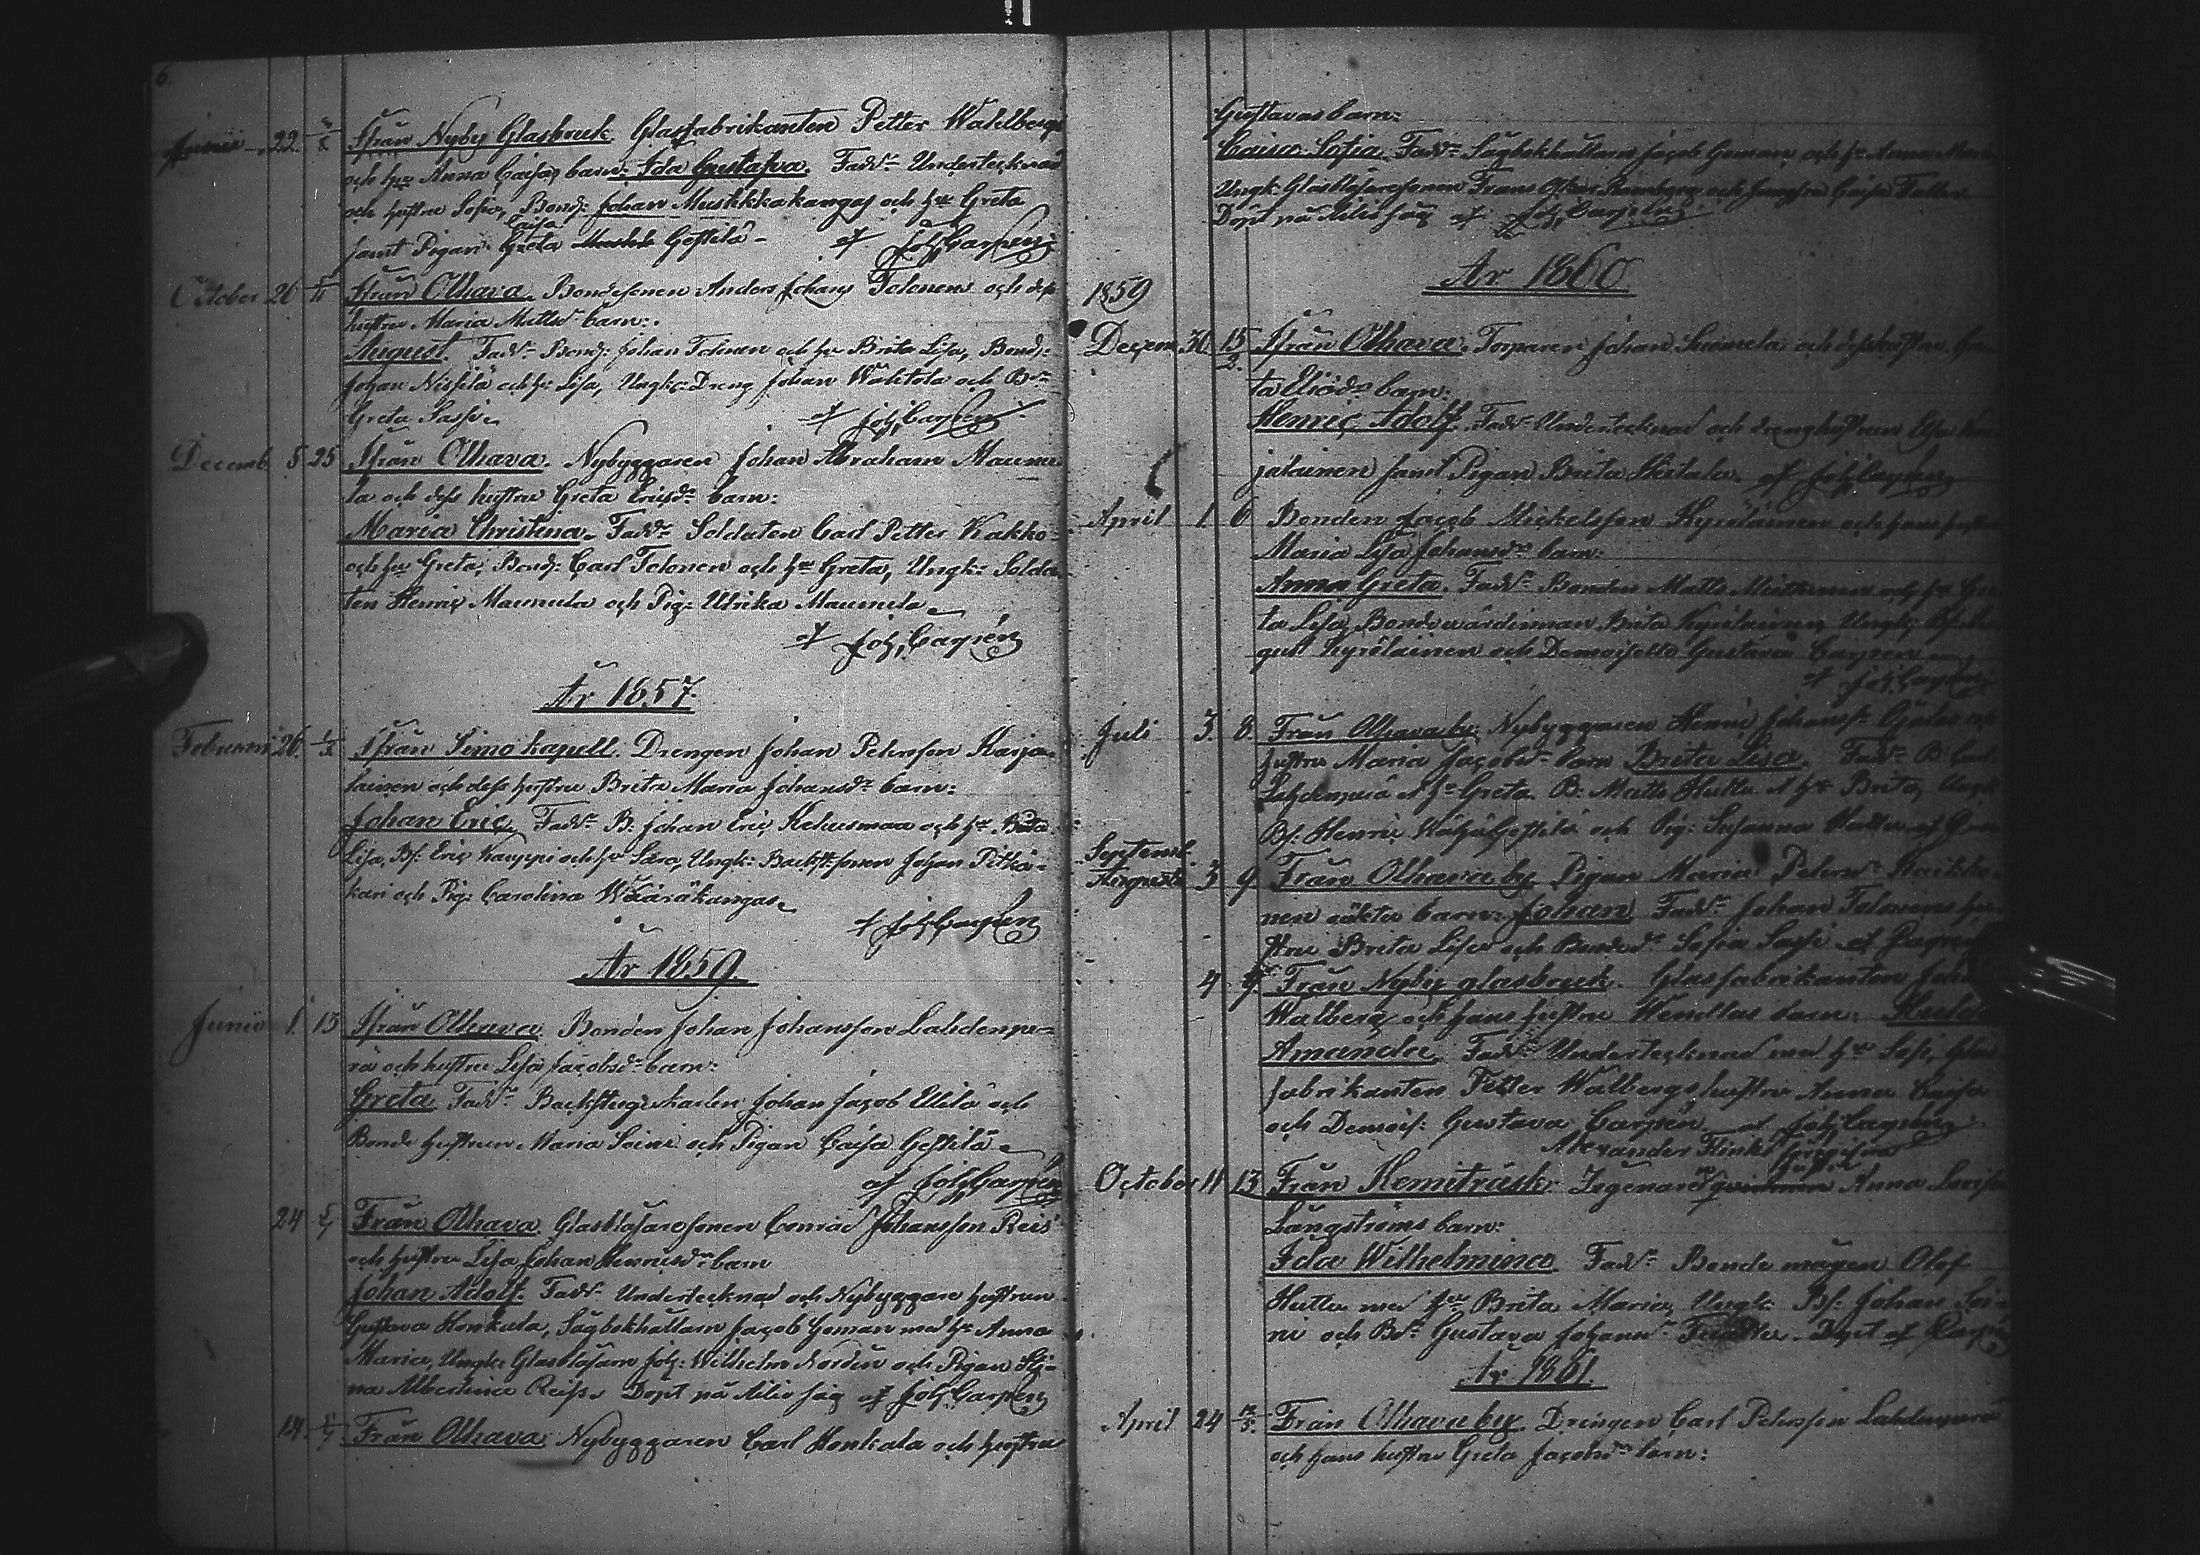 6.
Junii 22 Från Nyby Glasbruk. Glasfabrikanten Petter Wahlbergs
och hru Anna Caisas barn: Ida Gustafva. Faddr Undertecknad
och hustru Sofia, Bond: Johan Muskkakangas och hru Greta
samt Pigan: Caisa Greta Gestilä – af Joh. Carpén
October 20 Från Olhava. Bondesonen Anders Johans Tolonen och dess
hustru Maria Matsdr barn:
August. Faddr Bond: Johan Tolonen och hu Brita Lisa, Bond:
Johan Nissilä och h: Lisa, Ungk: Dreng Johan Wahtola och Bdr
Greta Sassi. af Joh. Carpén
Decemb 5 25 Från Olhava. Nybyggaren Johan Abraham Maunu-
la och dess hustru Greta Ericsdr barn:
Maria Christina. Faddr Soldaten Carl Petter Kakko-
och hu Greta, Bond: Carl Tolonen och hu Greta, Ungk: Solda-
ten Henric Maunula och Pig: Ulrika Maunula
af Joh. Carpén
År 1857.
Februari 26. Från Simo kapell. Drengen Johan Petersson Karja-
lainen och dess hustru Brita Maria Johansdr barn:
Johan Eric. Faddr B. Johan Eric Keskusmaa och hu Brita
Lisa, Bs: Eric Kauppi och hu Sara, Ungk: Backst:sonen Johan Pitkä-
kari och Pig: Carolina Wääräkangas.
af Joh. Carpén
År 1859.
Junii 1. 13 Från Olhava. Bonden Johan Johansson Lahdenpe-
rä och hustru Lisa Jacobsdr barn:
Greta. Faddr Backstugukarlen Johan Jacob Ellilä och
Bonde hustrun Maria Soini och Pigan Caisa Gestilä
af Joh. Carpén
24 5/7 Från Olhava. Glasblåsaresonen Conrad Johansson Reis
och hustru Lisa Johan Henricsdr barn
Johan Adolf. Faddr Undertecknad och Nybyggare hustrun
Gustava Honkala, Sågbokhållarn Jacob Goman med hu Anna
Maria, Ungk: Glasblåsarn Joh: Wilhelm Nordin och Pigan Sti-
na Albertina Reiss. Döpt på Kilis såg af Joh. Carpén
14 Från Olhava. Nybyggaren Carl Honkala och hustru
Gustavas barn:
Caisa Sofia. Faddr Sågbokhållarn Jacob Goman och hu Anna Mar
Ungk: Glasblåsaresonen Frans Oskar och Jungfru Caisa
Döpt på Kilis såg af Joh. Carpén
År 1860
1859
Decem 30 15/2. Från Olhava. Torparen Johan Suomela och dess hustru Gre-
ta barn:
Henric Adolf. Faddr Undertecknad och drenghustrun Elsa Kar-
jalainen samt Pigan Brita af Joh. Carpén
April 1 6 Bonden Jacob Mickelsson Kyröläinen och hans hustru
Maria Lisa Johansdr barn:
Anna Greta. Faddr Bonden Matts och hu Gre-
ta Lisa, Bondevärdinnan Brita Kyröläinen, Ungk: Bs: Au-
gust Kyröläinen och Demoiselle Gustava Carpen
af Joh. Carpén
Juli 3 8 Från Olhava by. Nybyggaren Henric Johanss: och
hustru Maria Jacobsdr barn Brita Lisa. Faddr B: Carl
Lahdenperä & hu Greta. B: Matts Huttu & hu Brita, Ungk
Bs: Henric Gestilä och Pig: Susanna Huttu af
Septemb.
Augusti 3 9 Från Olhava by. Pigan Maria Petersdr Kaikko-
nen oäkta barn: Johan. Faddr Johan Tolonens hu-
stru Brita Lisa och Bondedr Sofia Sassi af
4 9 Från Nyby glasbruk. Glasfabrikanten Johan
Walberg och hans hustru Wendlas barn: Hulda
Amanda. Faddr Undertecknad med hu Sofi, Glas-
fabrikanten Petter Walbergs hustru Anna Caisa
och Demois: Gustava Carpén af Joh. Carpén
Alexander Flinks
hustru
October 11 13 Från Kemiträsk. Anna Lovisa
Långströms barn:
Ida Wilhelmina. Faddr Bonde mågen Olof
Huttu med hu Brita Maria, Ungk: Bs: Johan Soi-
ni och Bdr Gustava Johansdr Döpt af Carpén
År 1861.
April 24 Från Olhava by. Drengen Carl Petersson Lahdenperä
och hans hustru Greta Jacobsdr barn: